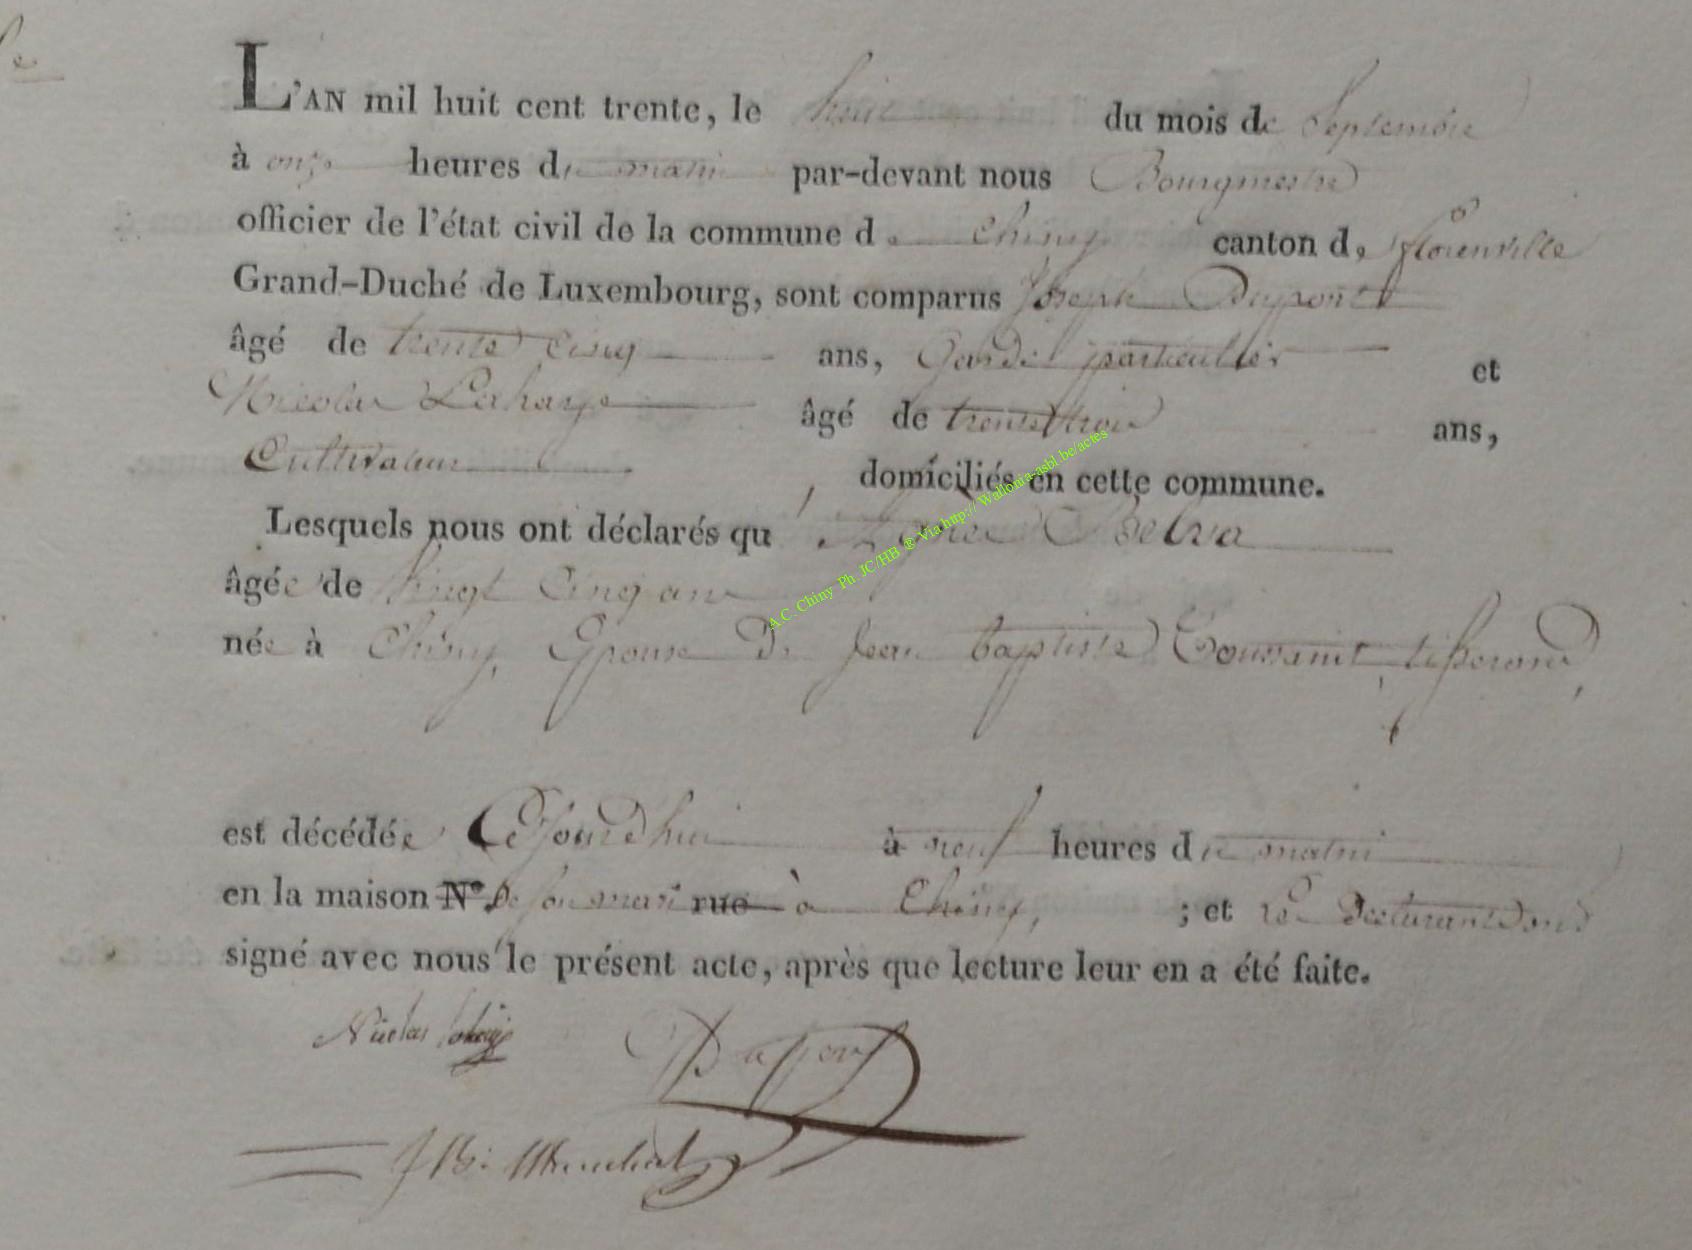 L'AN mil huit cent trente, le huit du mois de Septembre
à onze heures du matin par-devant nous Bourgmestre
officier de l'état civil de la commune de Chiny canton de florenville
Grand-Duché de Luxembourg, sont comparus Joseph Dupont
âgé de trente cinq ans, Garde particulier et
Nicolas Lahaye âgé de trente trois ans,
Cultivateur domiciliés en cette commune.
Lesquels nous ont déclarés qu' Agnès Selva
âgée de vingt cinq ans
née à Chiny, Epouse de Jean baptiste Toussaint, tisserand,
est décédée Cejourdhui à neuf heures du matin
en la maison N° De son mari rue à Chiny, ; et les Declarants ont
signé avec nous le présent acte, après que lecture leur en a été faite.
Nicolas lahaye Dupont
A.C. Chiny Ph. JC/HB ® Via http:// Wallonia-asbl.be/actes